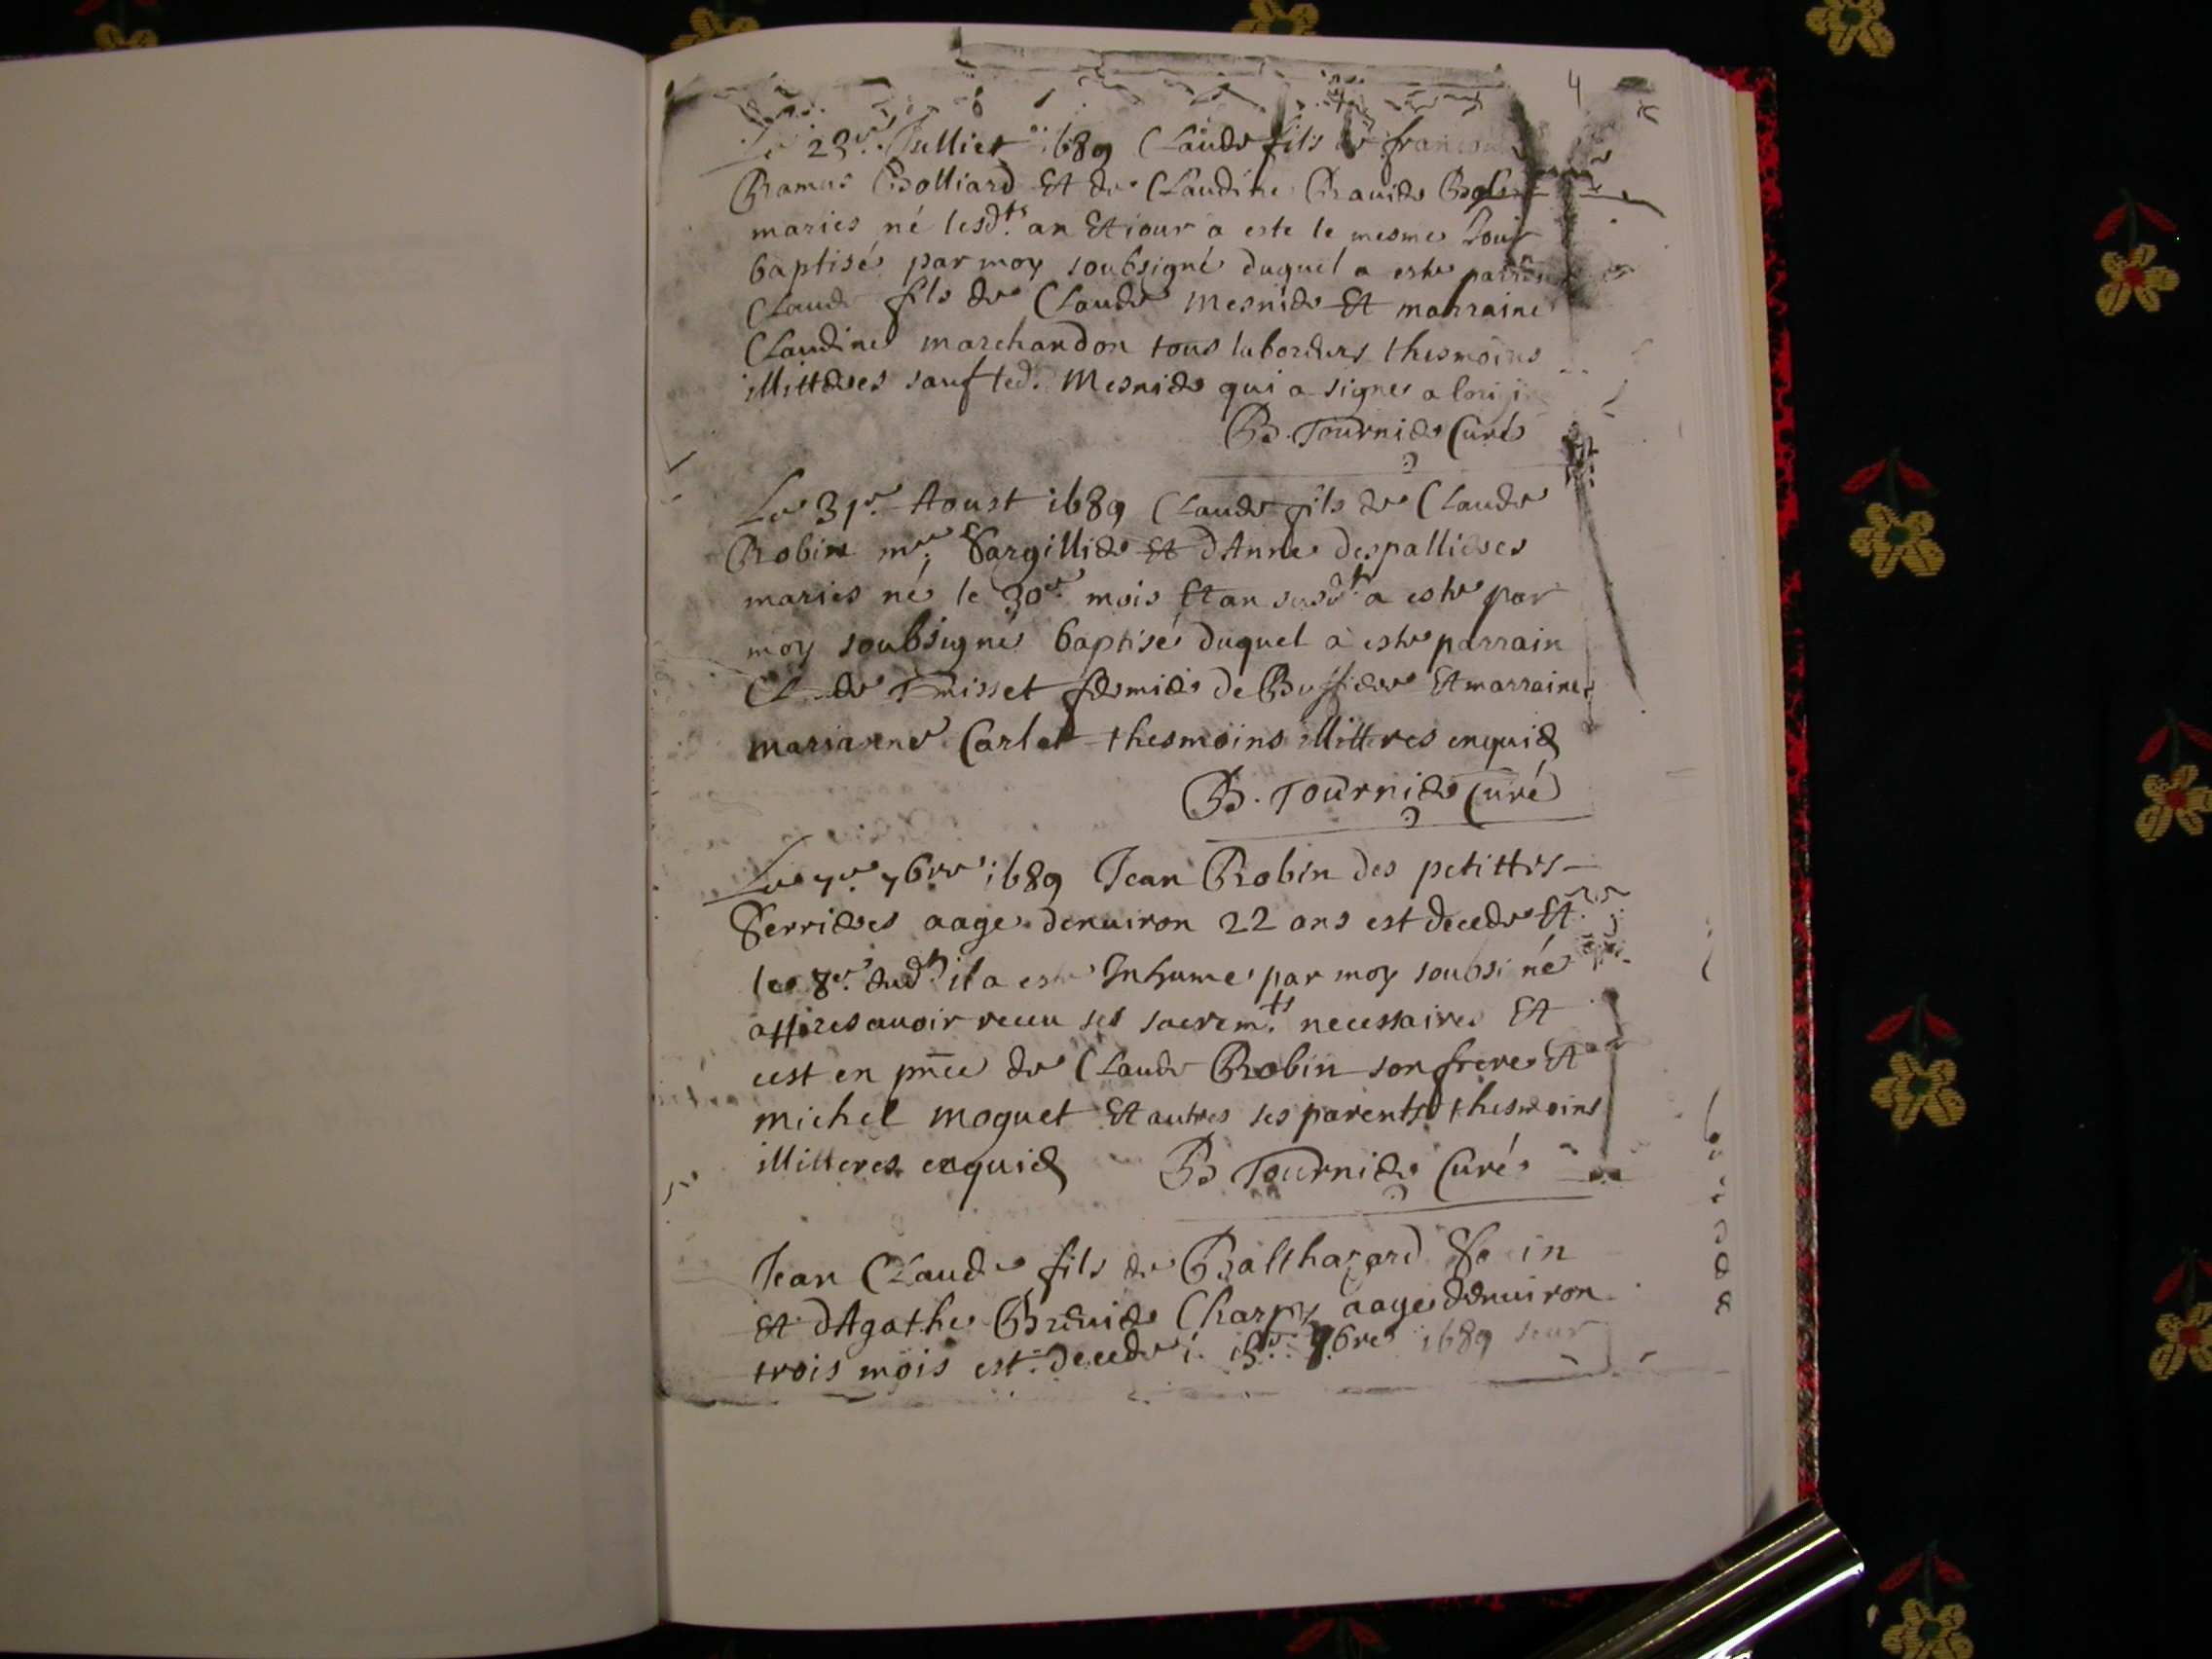 4
Le 23e. Julliet 1689 Claude fils de francois
Ramus Bolliard Et de Claudine
maries né lesd.t an Et iour a este le mesme Iour
baptisé par moy soubsigné duquel a este parrain
Claude fils de Claude Mesnier Et marraine
Claudine marchandon tous laboreurs thesmoins
illitteres sauf led. Mesnier qui a signe a l'ori
B. Tournier Curé
Le 31e. Aoust 1689 Claude fils de Claude
Robin me. Vargillier Et d'Anne despallieres
maries né le 30e mois Et an susd.t a este par
moy soubsigné baptisé duquel à este parrain
Cl de Poisset fermier de Bussiere Et marraine
marianne Carlet thesmoins illitteres enquis
B. Tournier Curé
Le 7e. 7bre 1689 Jean Robin des petittes
Verrieres aage denuiron 22 ans est decede Et
le 8e. dud.t il a este Inhume par moy soubsi né
appres auoir receu ses sacrem.ts necessaires Et
cest en pnce de Claude Robin son frere Et
michel moguet Et autres ses parents thesmoins
illitteres enquis B Tournier Curé
Jean Claude fils de Balthazard Vo in
Et d'Agathe Charpy aage denuiron
trois mois est decede 7bre 1689 seur